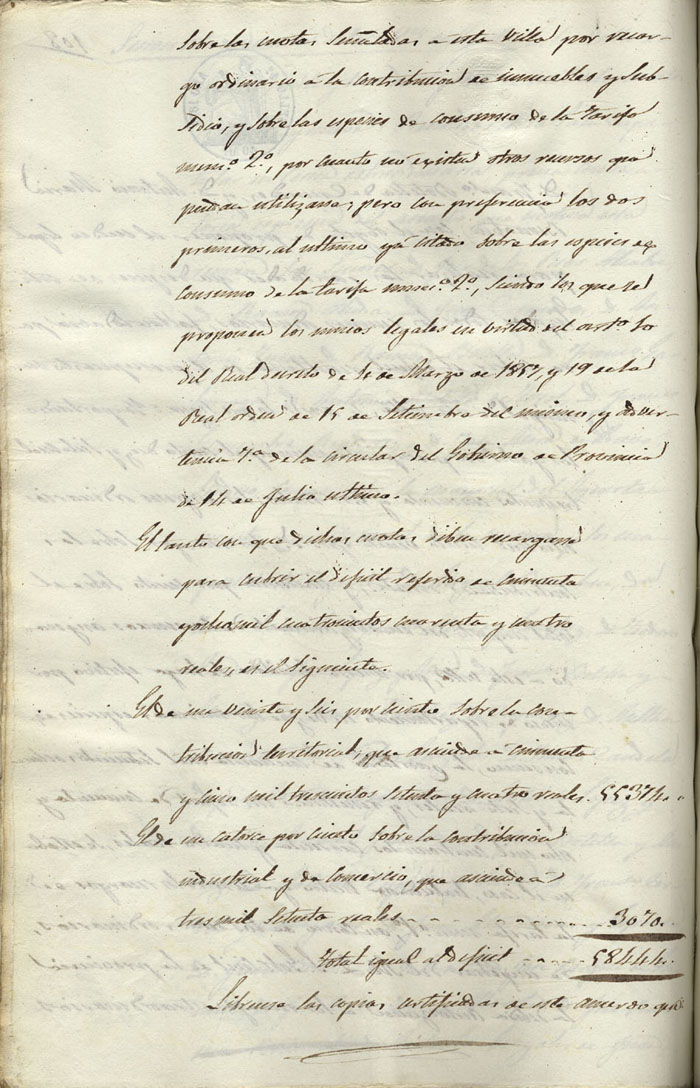 sobre las cuotas señaladas a esta Villa por recar-
go ordinario á la contribucion de inmuebles y sub-
sidio, y sobre las especies de consumo de la tarifa
num.º 2.º, por cuanto no existen otros recursos que
puedan utilizarse; pero con preferencia los dos
primeros, al ultimo yá citado sobre las especies de
consumo de la tarifa num.º 2.º, siendo los que se
proponen los unicos legales en virtud del art.º
del Real decreto de 4 de Marzo de 1857, y 19 de la
Real orden de 15 de Setiembre del mismo, y adver-
tencia 7.ª de la circular del Gobierno de Provincia
de 14 de Julio ultimo.
El tanto con que dichas cuotas deben recargarse
para cubrir el deficit referido de cincuenta
y ocho mil cuatrocientos cuarenta y cuatro
reales, es el siguiente.
El de un veinte y seis por ciento sobre la con-
tribucion territorial, que asciende a cincuenta
y cinco mil trescientos setenta y cuatro reales. 55374.
El de un catorce por ciento sobre la contribucion
industrial y de comercio, que asciende á
tres mil setenta reales 3070.
Total igual al deficit 58444.
Librense las copias certificadas de este acuerdo que